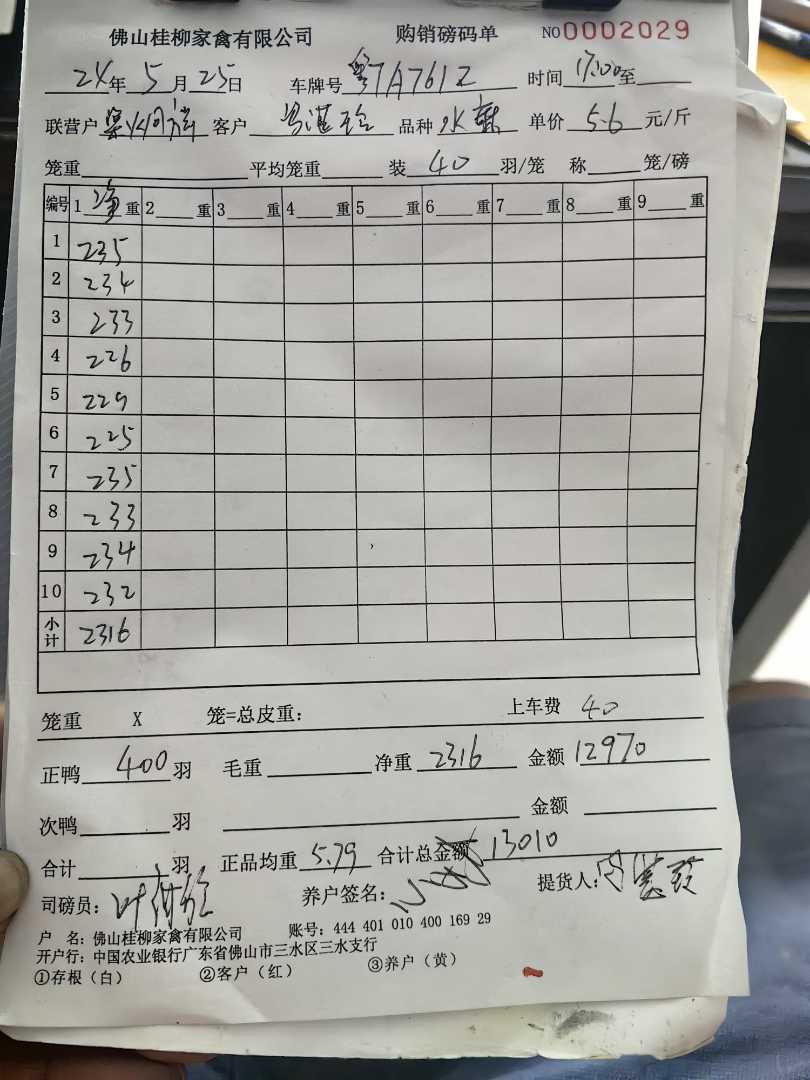 佛山桂柳家禽有限公司 购销磅码单 NO0002029
24年5月25日 车牌号粤7A761Z 时间17:00至
联营户 客户 品种水鸭 单价5.6元/斤
笼重 平均笼重 装40羽/笼 称 笼/磅
编号 1净重 2 重 3 重 4 重 5 重 6 重 7 重 8 重 9 重
1 235
2 234
3 233
4 226
5 229
6 225
7 235
8 233
9 234
10 232
小计 2316
笼重 X 笼=总皮重： 上车费 40
正鸭400羽 毛重 净重2316 金额12970
次鸭 羽 金额
合计 羽 正品均重5.79 合计总金额13010
司磅员： 养户签名： 提货人：
户 名：佛山桂柳家禽有限公司 账号：444 401 010 400 169 29
开户行：中国农业银行广东省佛山市三水区三水支行
①存根（白） ②客户（红） ③养户（黄）